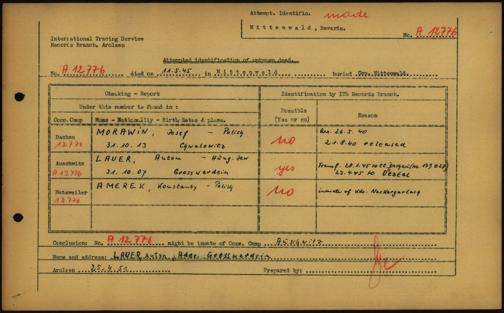 Attempt. Identific. made
Mittenwald, Bavaria.
No. A 12.776
International Tracing Service
Records Branch, Arolsen
Attempted identification of unknown dead.
No. A 12.776 died on 11.5.45 in Mittenwald buried Cem. Mittenwald.
Checking - Report
Identification by ITS Records Branch.
Under this number is found in:
Possible (Yes or no)
Reason
Conc.Camp
Name - Nationality - Birth Dates & place.
Dachau 12.776
MORAWIN, Josef - Polish
31.10.13
no
arr. 26.5.40
released
Auschwitz A 12.776
LAUER, Anton - Hung. Jew
31.10.07 Grosswardein
yes
Natzweiler 12.776
AMEREK, Konstanty - Polish
no
inmate of Kdo. Neckargerlach
Conclusion: No. A 12.776 might be inmate of Conc. Camp Auschwitz
Name and address: LAUER Anton Grosswardein
Arolsen
Prepared by: